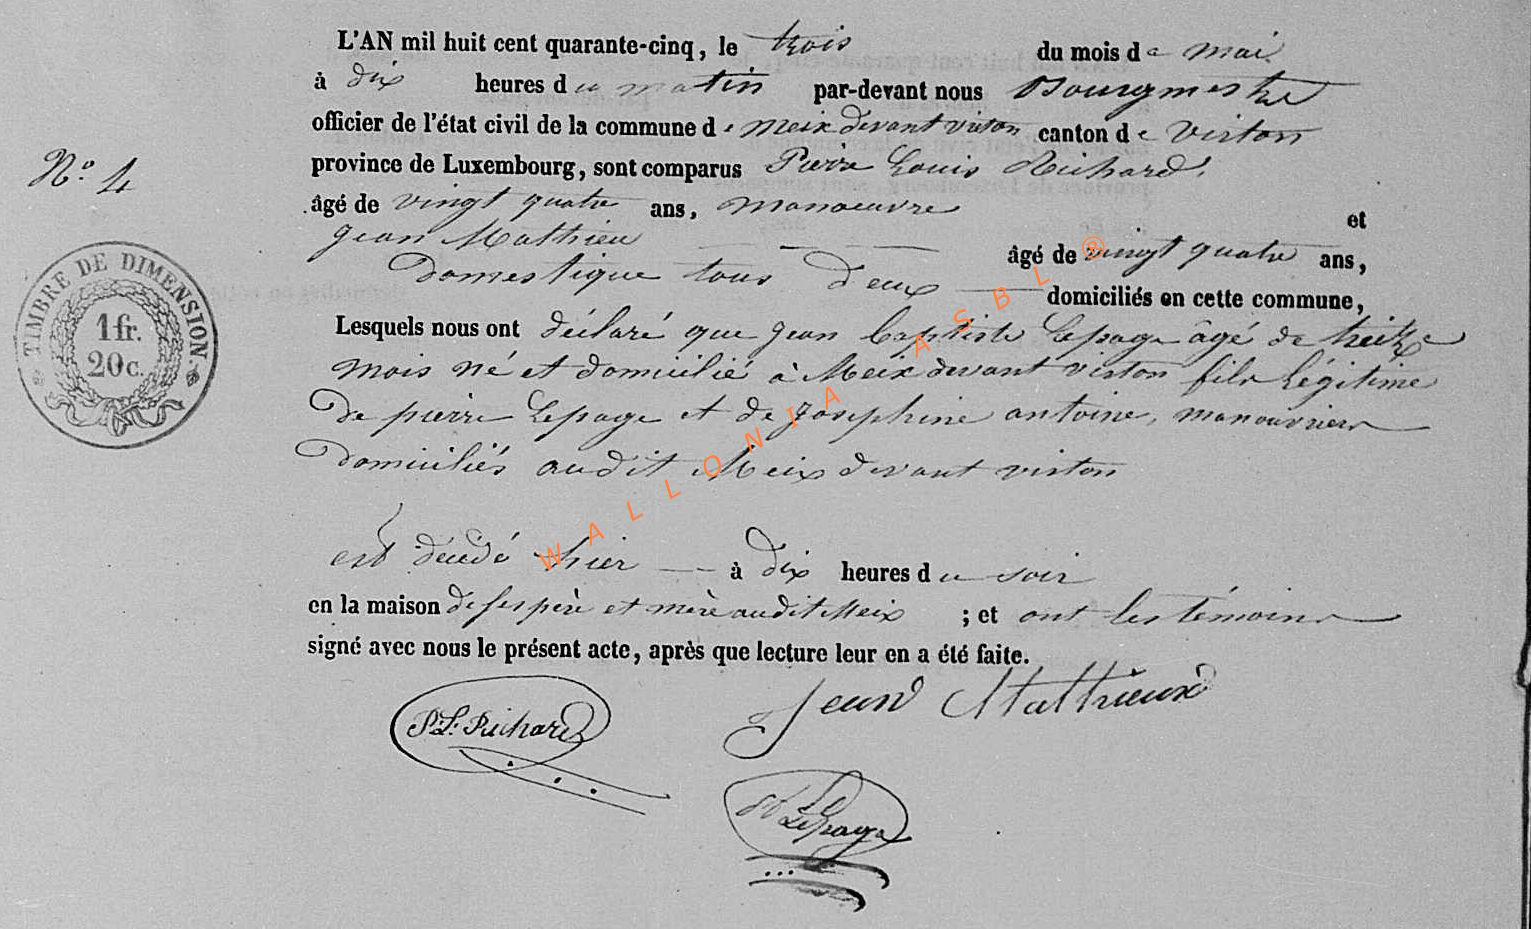 L'AN mil huit cent quarante-cinq, le trois du mois de mai
à dix heures du matin par-devant nous Bourgmestre
officier de l'état civil de la commune de Meix devant virton canton de virton
province de Luxembourg, sont comparus Pierre Louis Richard,
N.° 4
âgé de vingt quatre ans, manoeuvre et
Jean Mathieu âgé de vingt quatre ans,
Domestique tous Deux domiciliés en cette commune,
Lesquels nous ont déclaré que jean baptiste Lepage âgé de treize
mois né et domicilié à Meix devant virton fils Légitime
De pierre Lepage et de Josephine antoine, manouvriers
Domiciliés audit Meix devant virton
est décédé hier à dix heures du soir
en la maison de ses père et mère audit Meix ; et ont les témoins
signé avec nous le présent acte, après que lecture leur en a été faite.
P. L. Richard
Jean Mathieux
Lepage
TIMBRE DE DIMENSION.
1 fr.
20 c.
WALLONIA ASBL ®